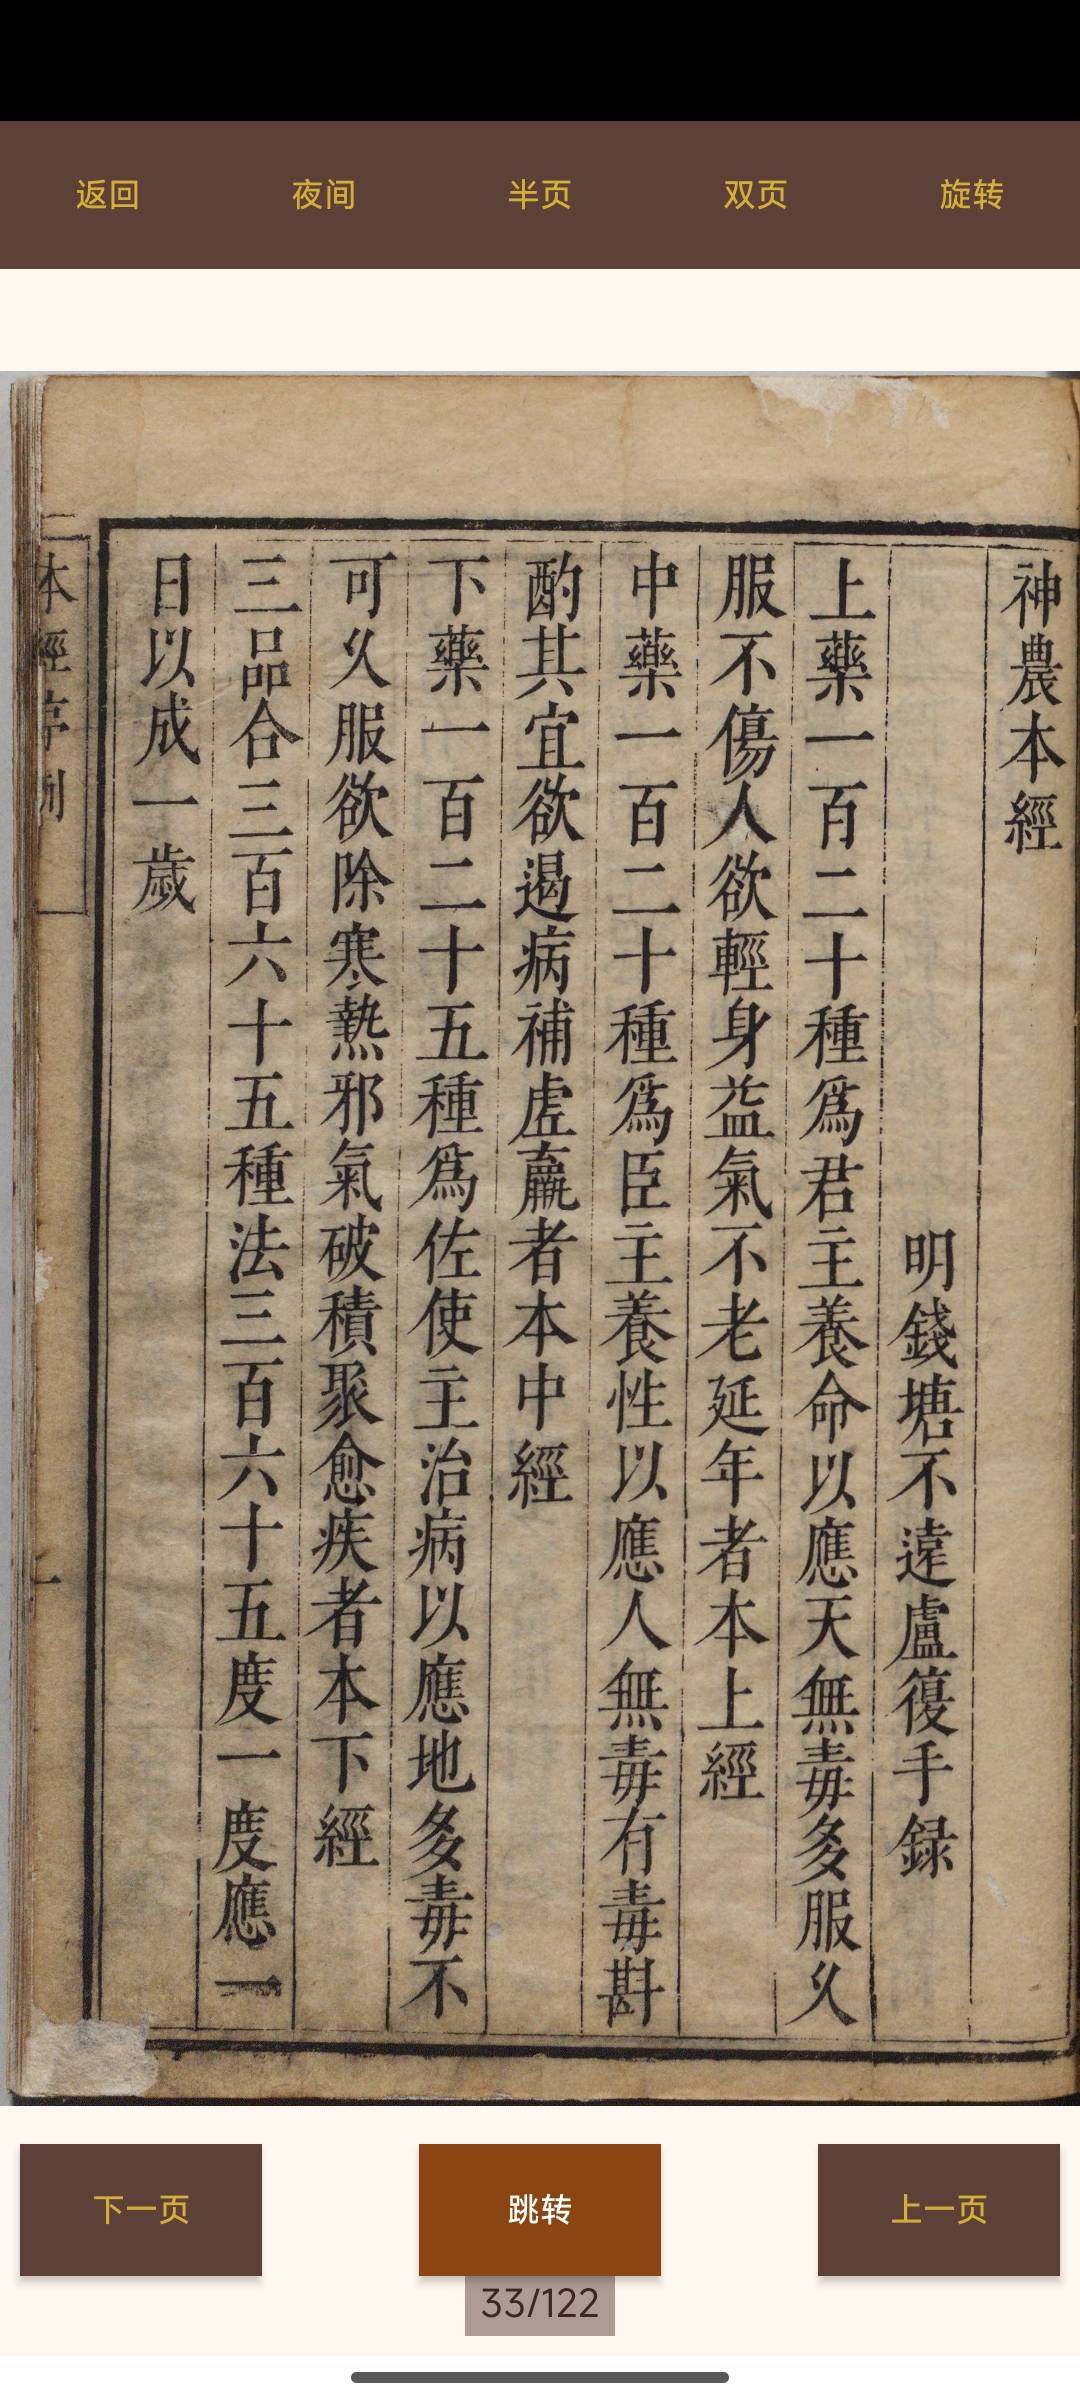 返回 夜间 半页 双页 旋转
神農本經
明錢塘不遠盧復手録
上藥一百二十種爲君主養命以應天無毒多服久
服不傷人欲輕身益氣不老延年者本上經
中藥一百二十種爲臣主養性以應人無毒有毒斟
酌其宜欲遏病補虛羸者本中經
下藥一百二十五種爲佐使主治病以應地多毒不
可久服欲除寒熱邪氣破積聚愈疾者本下經
三品合三百六十五種法三百六十五度一度應一
日以成一歲
本經序例
一
下一页 跳转 上一页
33/122